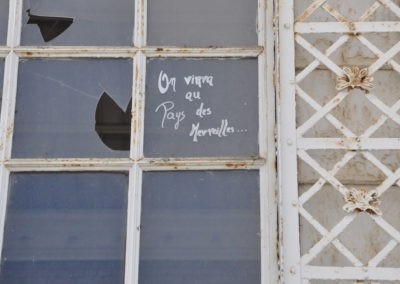 On vivra
au
Pays des
Merveilles...